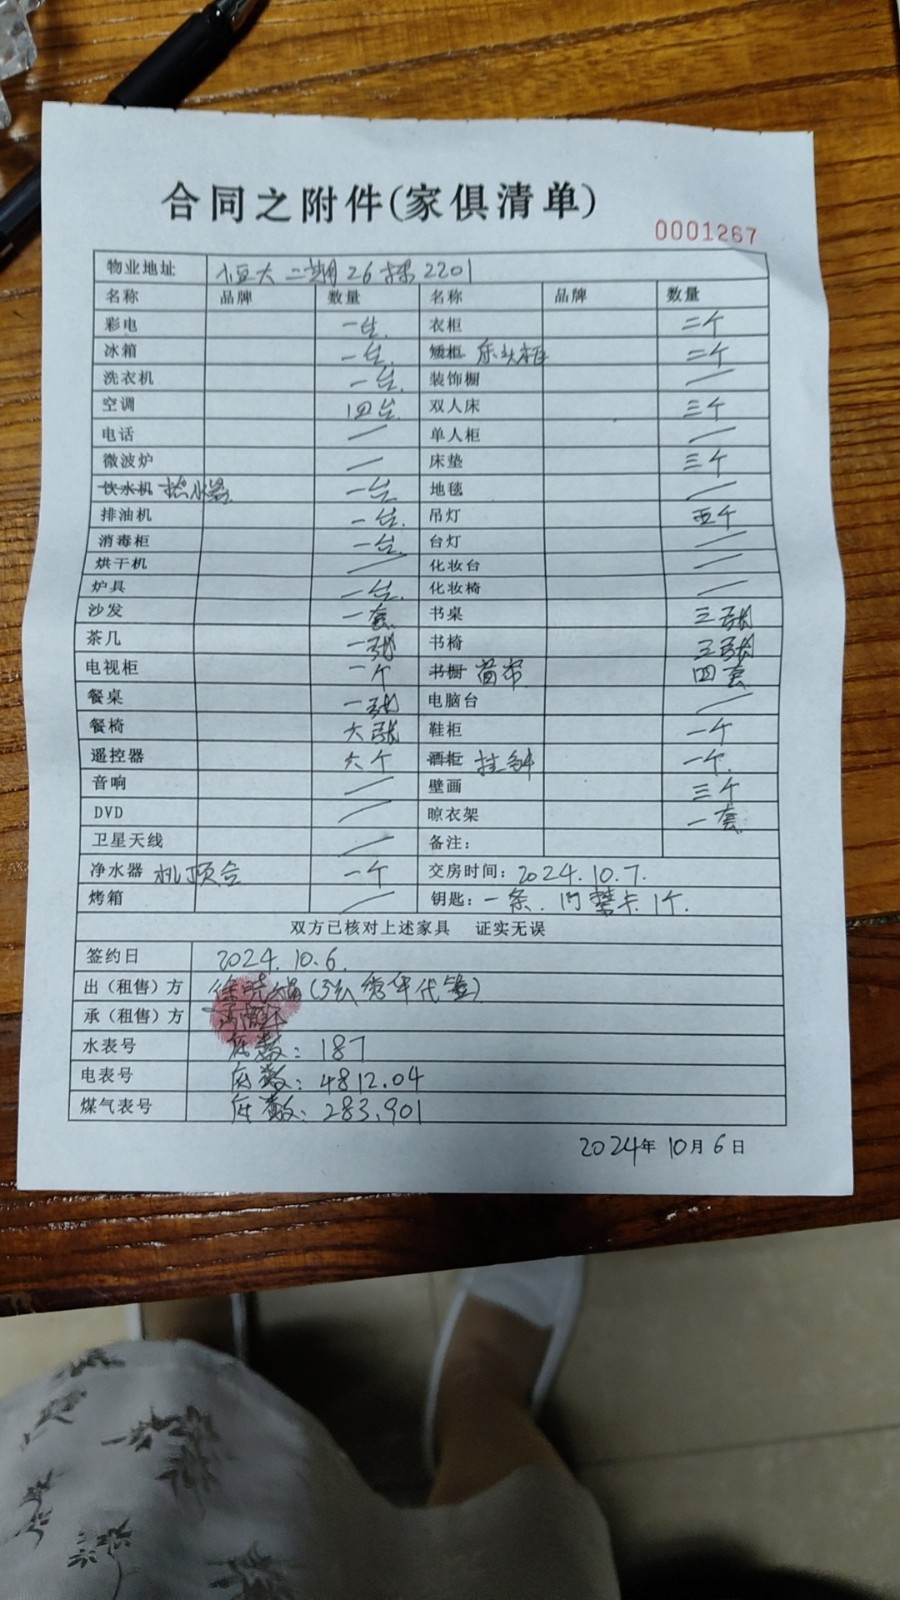 合同之附件(家俱清单)
0001267
物业地址 恒大二期26栋2201
名称 品牌 数量 名称 品牌 数量
彩电 一台 衣柜 二个
冰箱 一台 矮柜 床头柜 二个
洗衣机 一台 装饰橱 /
空调 四台 双人床 三个
电话 / 单人柜 /
微波炉 / 床垫 三个
饮水机 热水器 一台 地毯 /
排油机 一台 吊灯 五个
消毒柜 一台 台灯 /
烘干机 / 化妆台 /
炉具 一台 化妆椅 /
沙发 一套 书桌 三张
茶几 一张 书椅 三张
电视柜 一个 书橱 窗帘 四套
餐桌 一张 电脑台 /
餐椅 六张 鞋柜 一个
遥控器 六个 酒柜 挂钟 一个
音响 / 壁画 三个
DVD / 晾衣架 一套
卫星天线 / 备注:
净水器 机顶合 一个 交房时间: 2024.10.7.
烤箱 / 钥匙: 一条. 门禁卡1个.
双方已核对上述家具 证实无误
签约日 2024.10.6.
出（租售）方 代签)
承（租售）方
水表号 底数: 187
电表号 底数: 4812.04
煤气表号 底数: 283.901
2024年10月6日